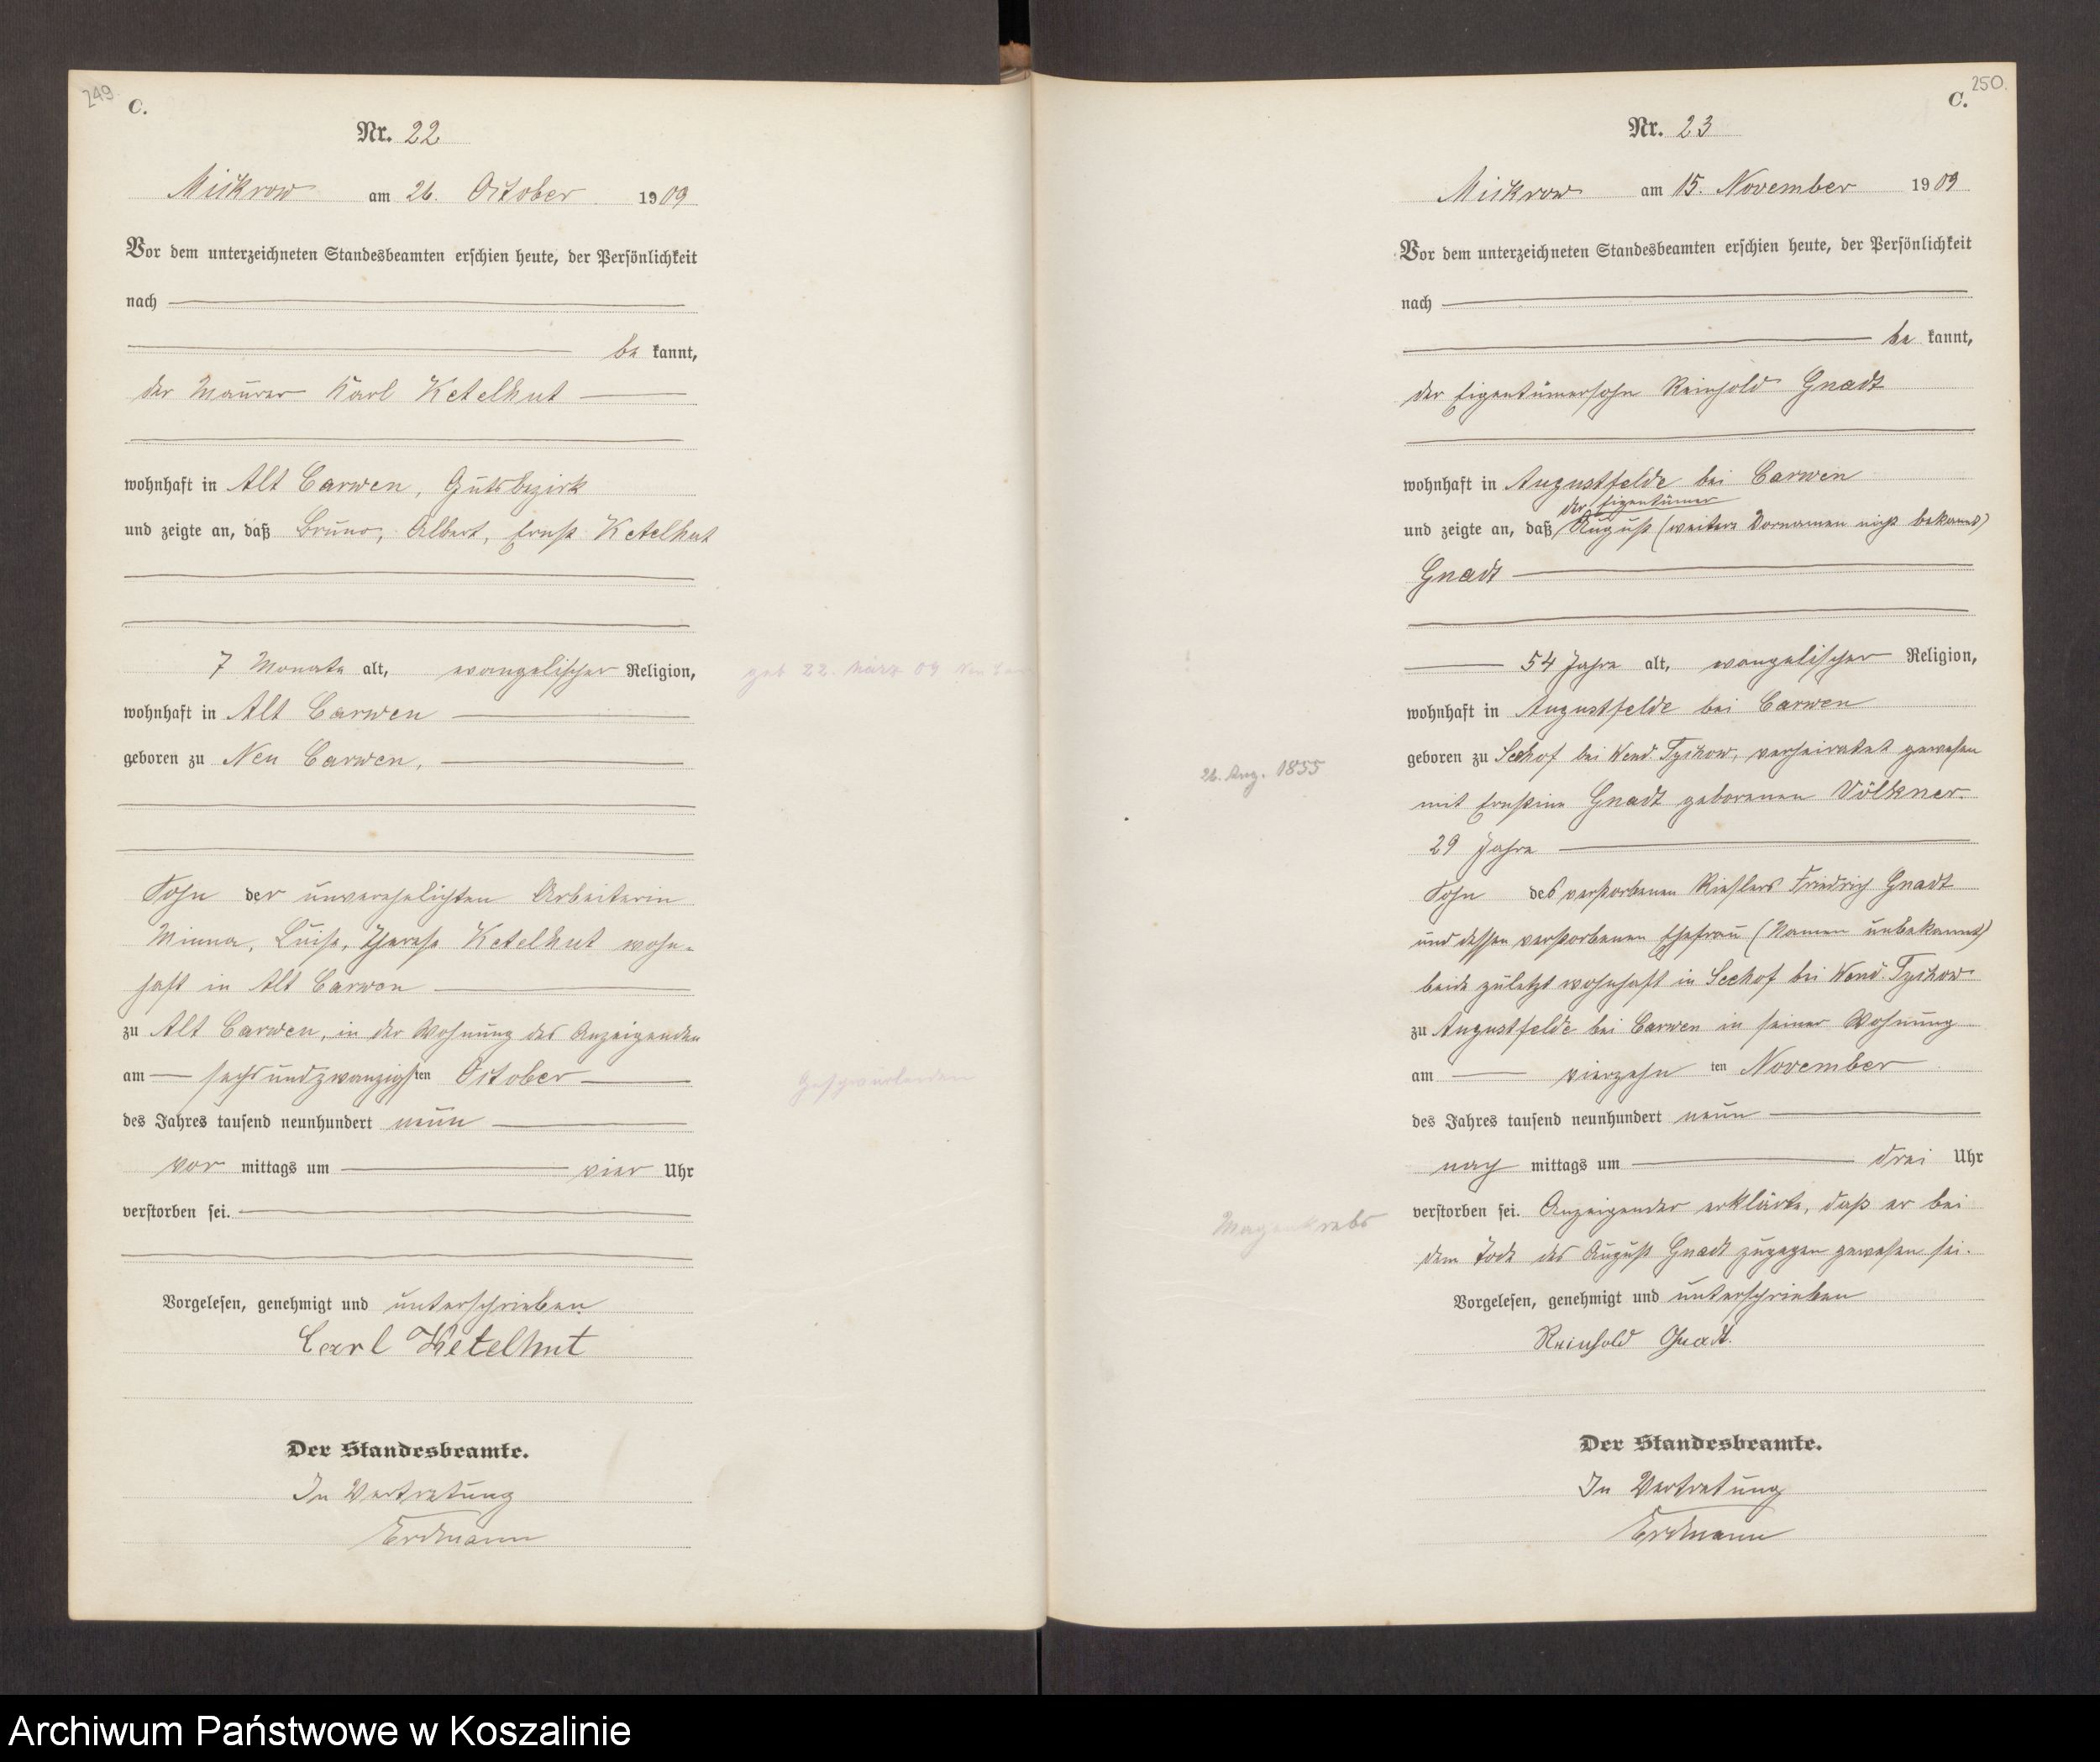 249.
C.
Nr. 22
Mickrow am 26. October 1909
Vor dem unterzeichneten Standesbeamten erschien heute, der Persönlichkeit
nach
be kannt,
der Maurer Karl Ketelhut
wohnhaft in Alt Carwen, Gutsbezirk
und zeigte an, daß Bruno, Albert, Ernst Ketelhut
7 Monate alt, evangelischer Religion,
geb 22. März 09 Neu Car
wohnhaft in Alt Carwen
geboren zu Neu Carwen,
Sohn der unverehelichten Arbeiterin
Minna, Luise, Therese Ketelhut wohn-
haft in Alt Carwen
zu Alt Carwen, in der Wohnung des Anzeigenden
am sechsundzwanzigsten October
des Jahres tausend neunhundert neun
vor mittags um vier Uhr
verstorben sei.
Vorgelesen, genehmigt und unterschrieben
Carl Ketelhut
Der Standesbeamte.
In Vertretung
Erdmann
250.
C.
Nr. 23
Mickrow am 15. November 1909
Vor dem unterzeichneten Standesbeamten erschien heute, der Persönlichkeit
nach
be kannt,
der Eigentümersohn Reinhold Gnadt
wohnhaft in Augustfelde bei Carwen
der Eigentümer
und zeigte an, daß August (weitere Vornamen nicht bekannt)
Gnadt
54 Jahre alt, evangelischer Religion,
wohnhaft in Augustfelde bei Carwen
geboren zu Seehof bei Wend. Tychow, verheiratet gewesen
26. Aug. 1855
mit Ernstine Gnadt geborenen Völkner.
29 Jahre
Sohn des verstorbenen Rieslers Friedrich Gnadt
und dessen verstorbenen Ehefrau (Namen unbekannt)
beide zuletzt wohnhaft in Seehof bei Wend. Tychow
zu Augustfelde bei Carwen in seiner Wohnung
am vierzehn ten November
des Jahres tausend neunhundert neun
nach mittags um drei Uhr
verstorben sei. Anzeigender erklärte, daß er bei
Magenkrebs
dem Tode des August Gnadt zugegen gewesen sei.
Vorgelesen, genehmigt und unterschrieben
Reinhold Gnadt.
Der Standesbeamte.
In Vertretung
Erdmann
Archiwum Państwowe w Koszalinie